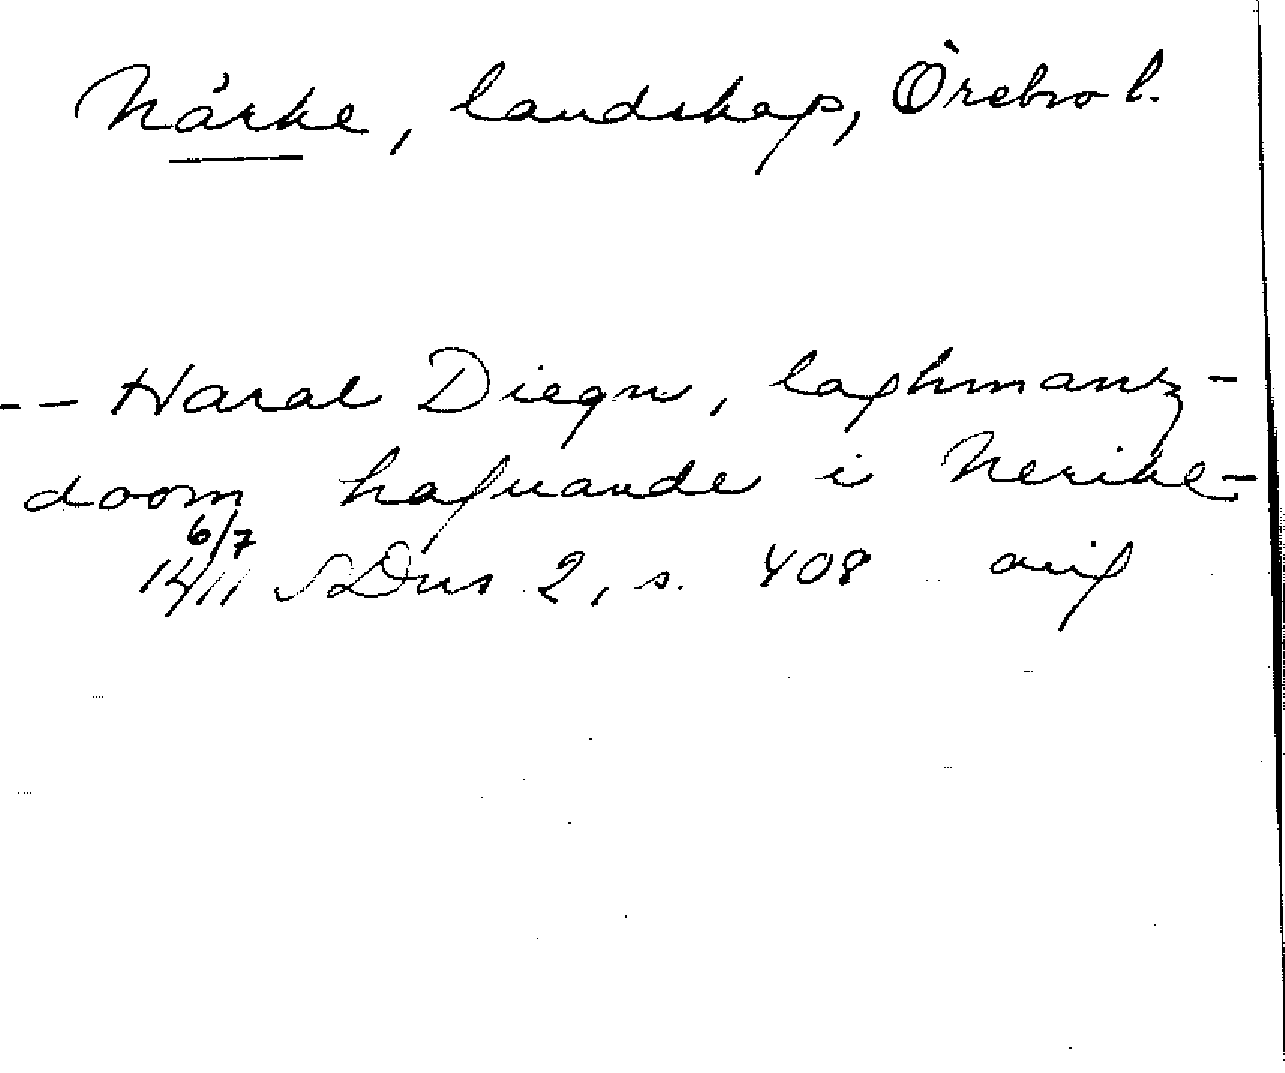 Närke, landskap, Örebro l.
-- Haral Diegn, laghmanz-
doom hafuande i Nerike -
6/7
1411 SDns 2, s. 408 avif